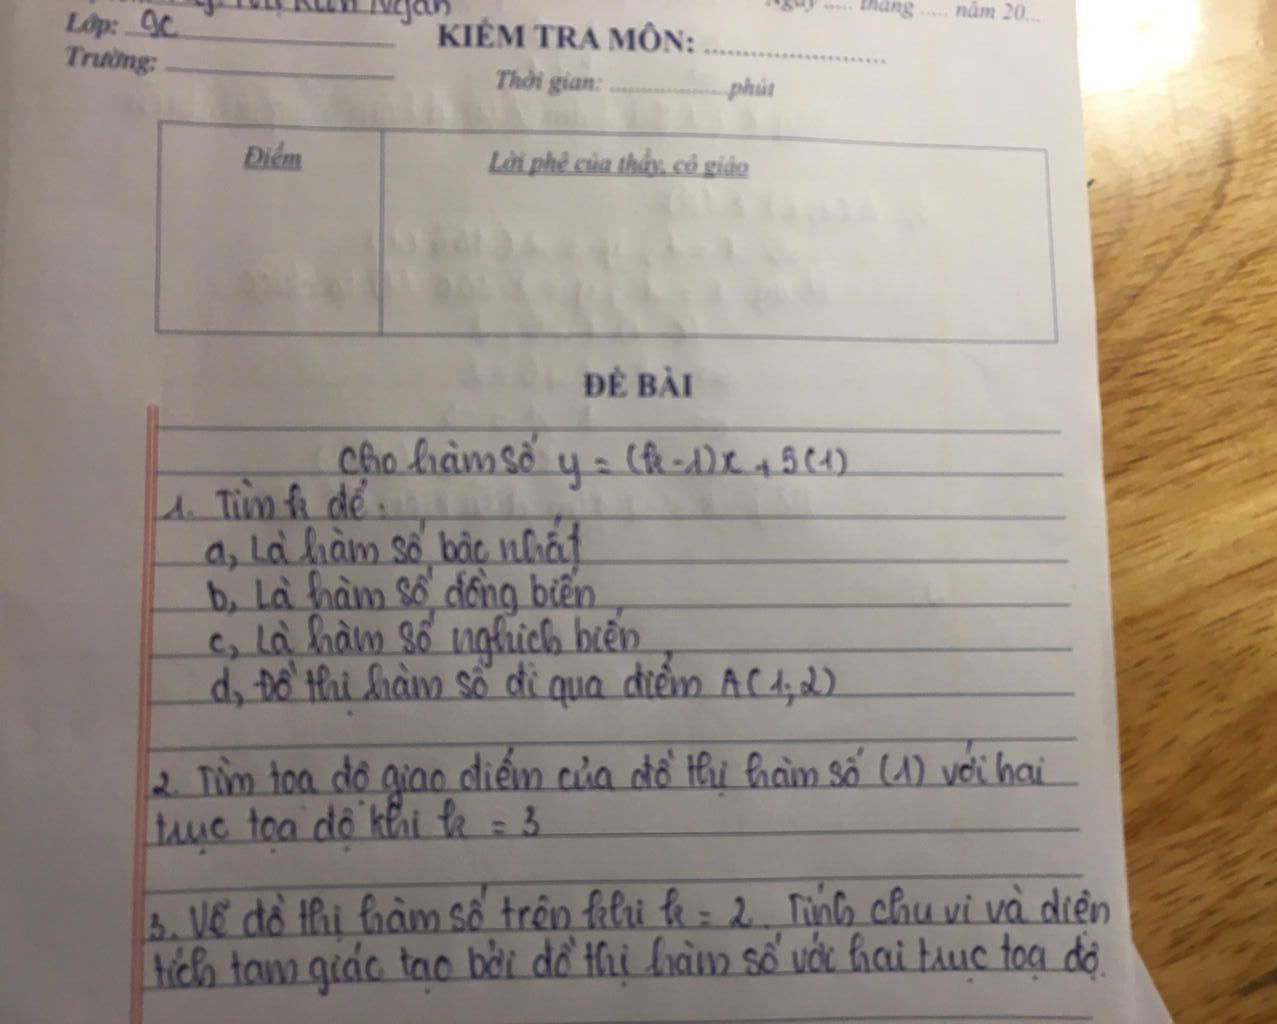 Ngân
Ngày ..... tháng ..... năm 20...
Lớp: 9C
KIỂM TRA MÔN: .......................
Trường:
Thời gian: .....................phút
Điểm
Lời phê của thầy, cô giáo
ĐỀ BÀI
Cho hàm số y = (k-1)x + 3 (1)
1. Tìm k để:
a, Là hàm số bậc nhất
b, Là hàm số đồng biến
c, Là hàm số nghịch biến
d, Đồ thị hàm số đi qua điểm A(1;2)
2. Tìm toạ độ giao điểm của đồ thị hàm số (1) với hai
trục tọa độ khi k = 3
3. Vẽ đồ thị hàm số trên khi k = 2. Tính chu vi và diện
tích tam giác tạo bởi đồ thị hàm số với hai trục toạ độ.